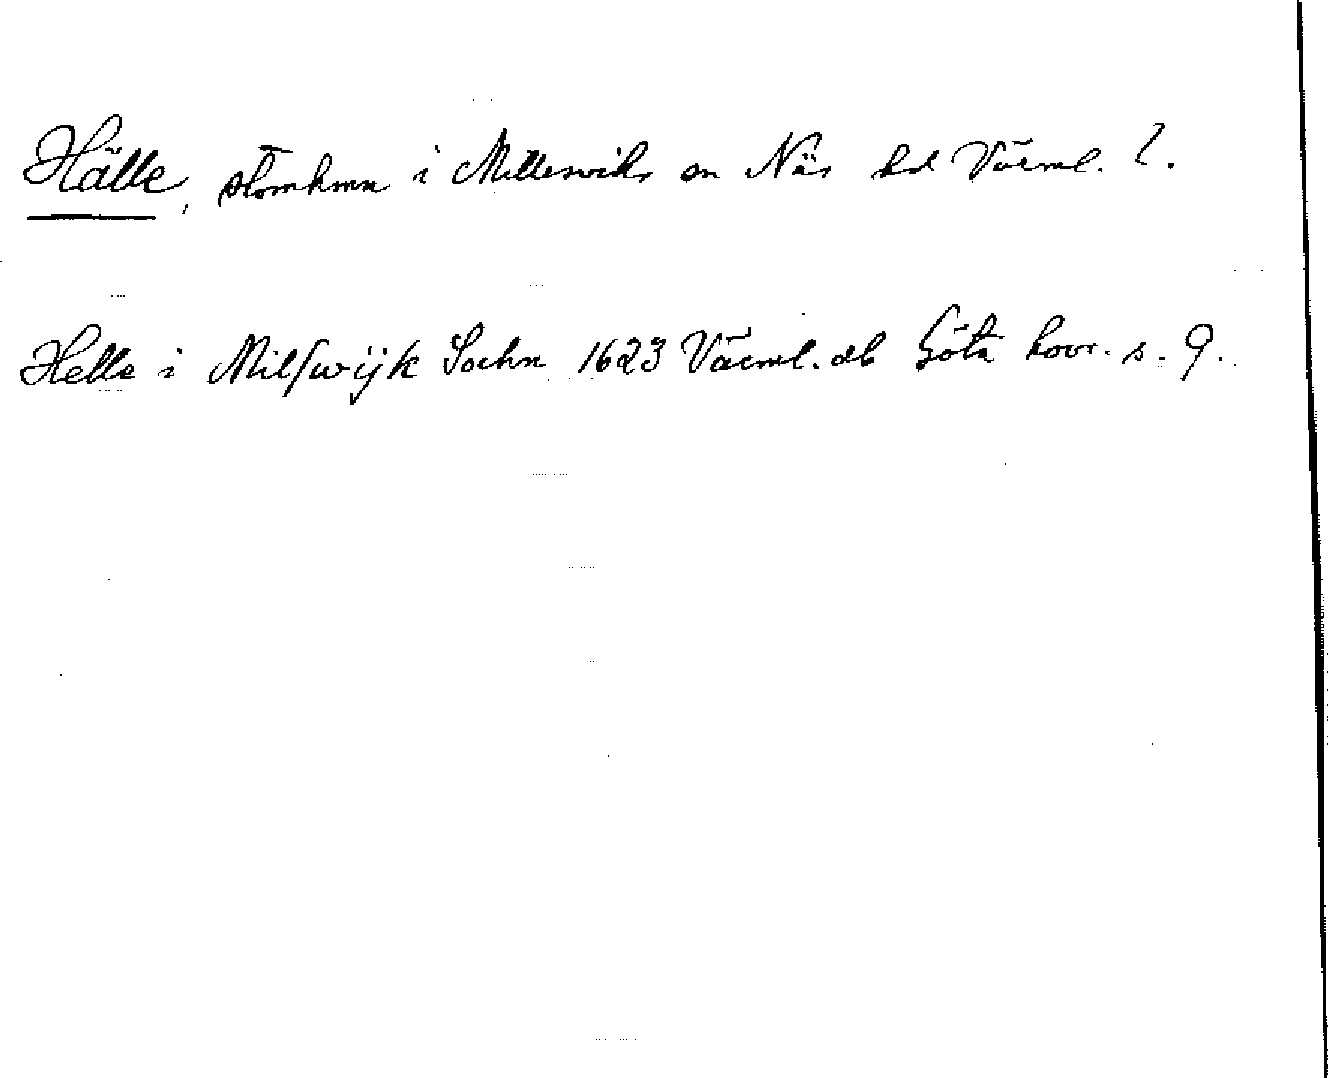 Hälle, stomhmn i Millesviks sn Näs hd Värml. l.
Helle i Milſwijk Sochn 1623 Värml. db Göta hovr. s. 9.